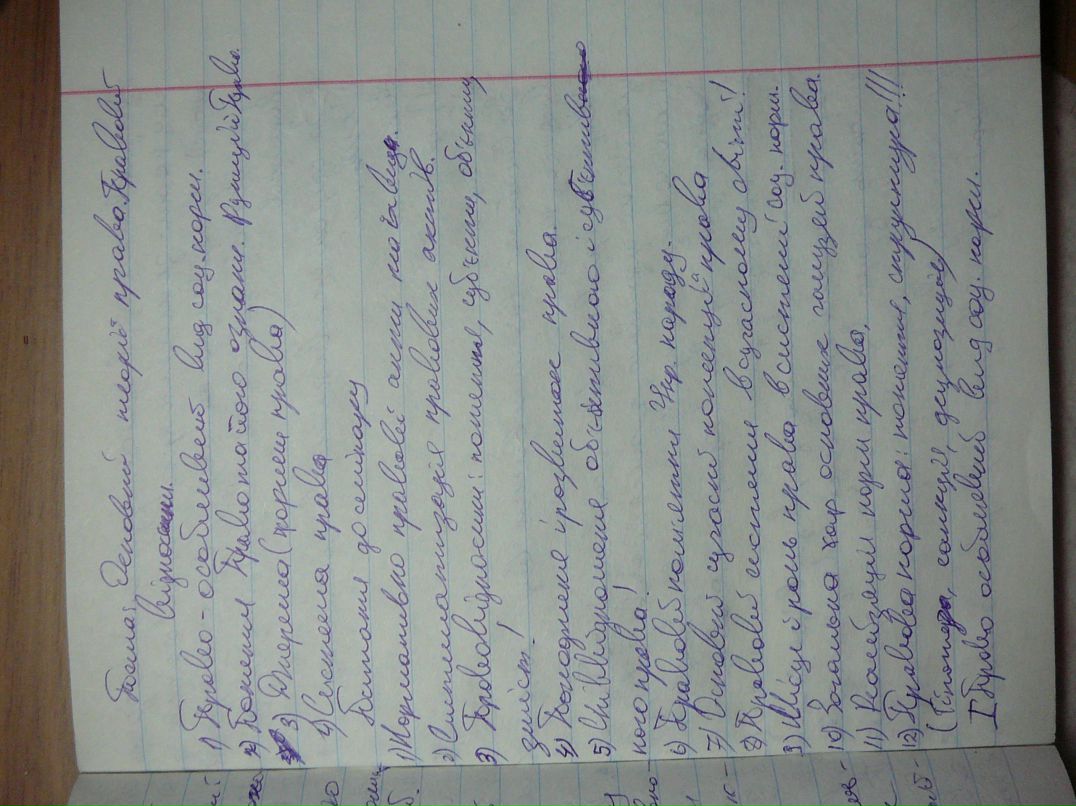 Тема: Основи теорії права. Правові
відносини.
1) Право - особливий вид соц. норм.
2) Поняття Права та його ознаки. Функції Права.
3) Джерела (форми права)
4) Система права
Питання до семінару
1) Нормативно правові акти та їх види.
2) Систематизація правових актів.
3) Правовідносини: поняття, субєкти, обєкти,
зміст!
4) Походження і розвиток права.
5) Співвідношення обєктивного і субєктив
ного права!
6) Правові пам'ятки Укр. народу.
7) Основні сучасні концепції права
8) Правові системи в сучасному світі!
9) Місце й роль права в системі соц. норм.
10) Загальна хар основних галузей права.
11) Реалізація норм права.
12) Правова норма: поняття, структура!!!
(Гіпотеза, санкція, диспозиція)
I Право особливий вид соц. норм.